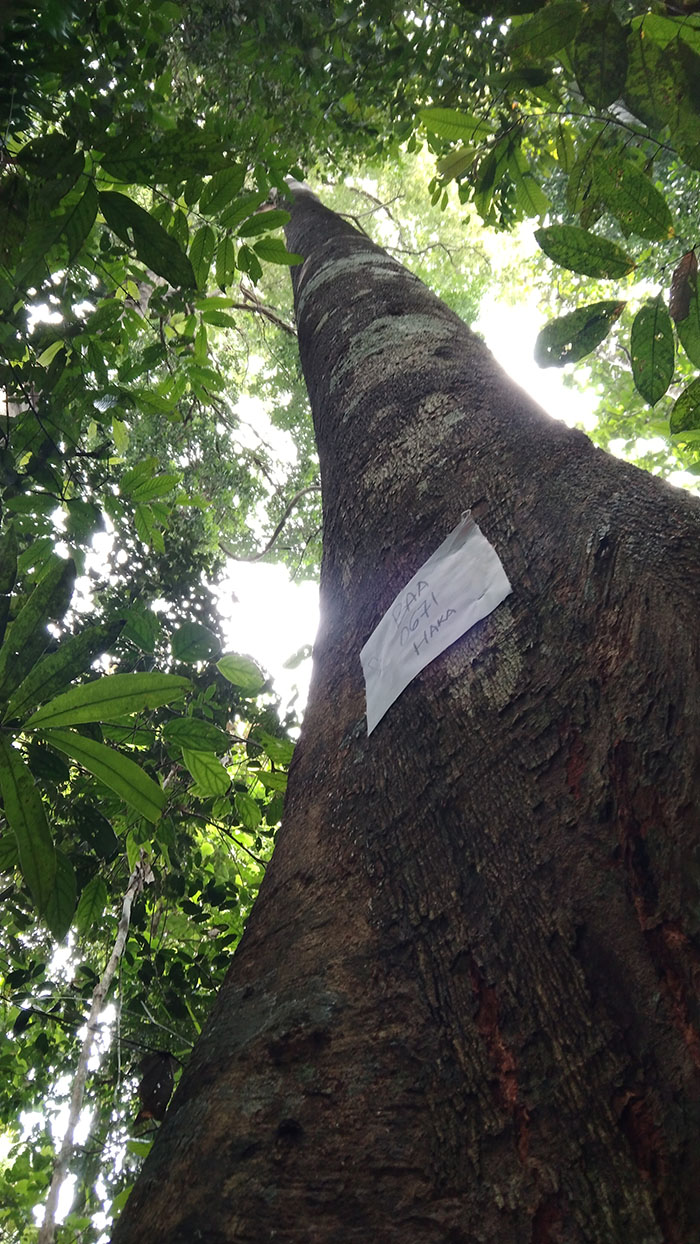 PAA
0671
HAKA